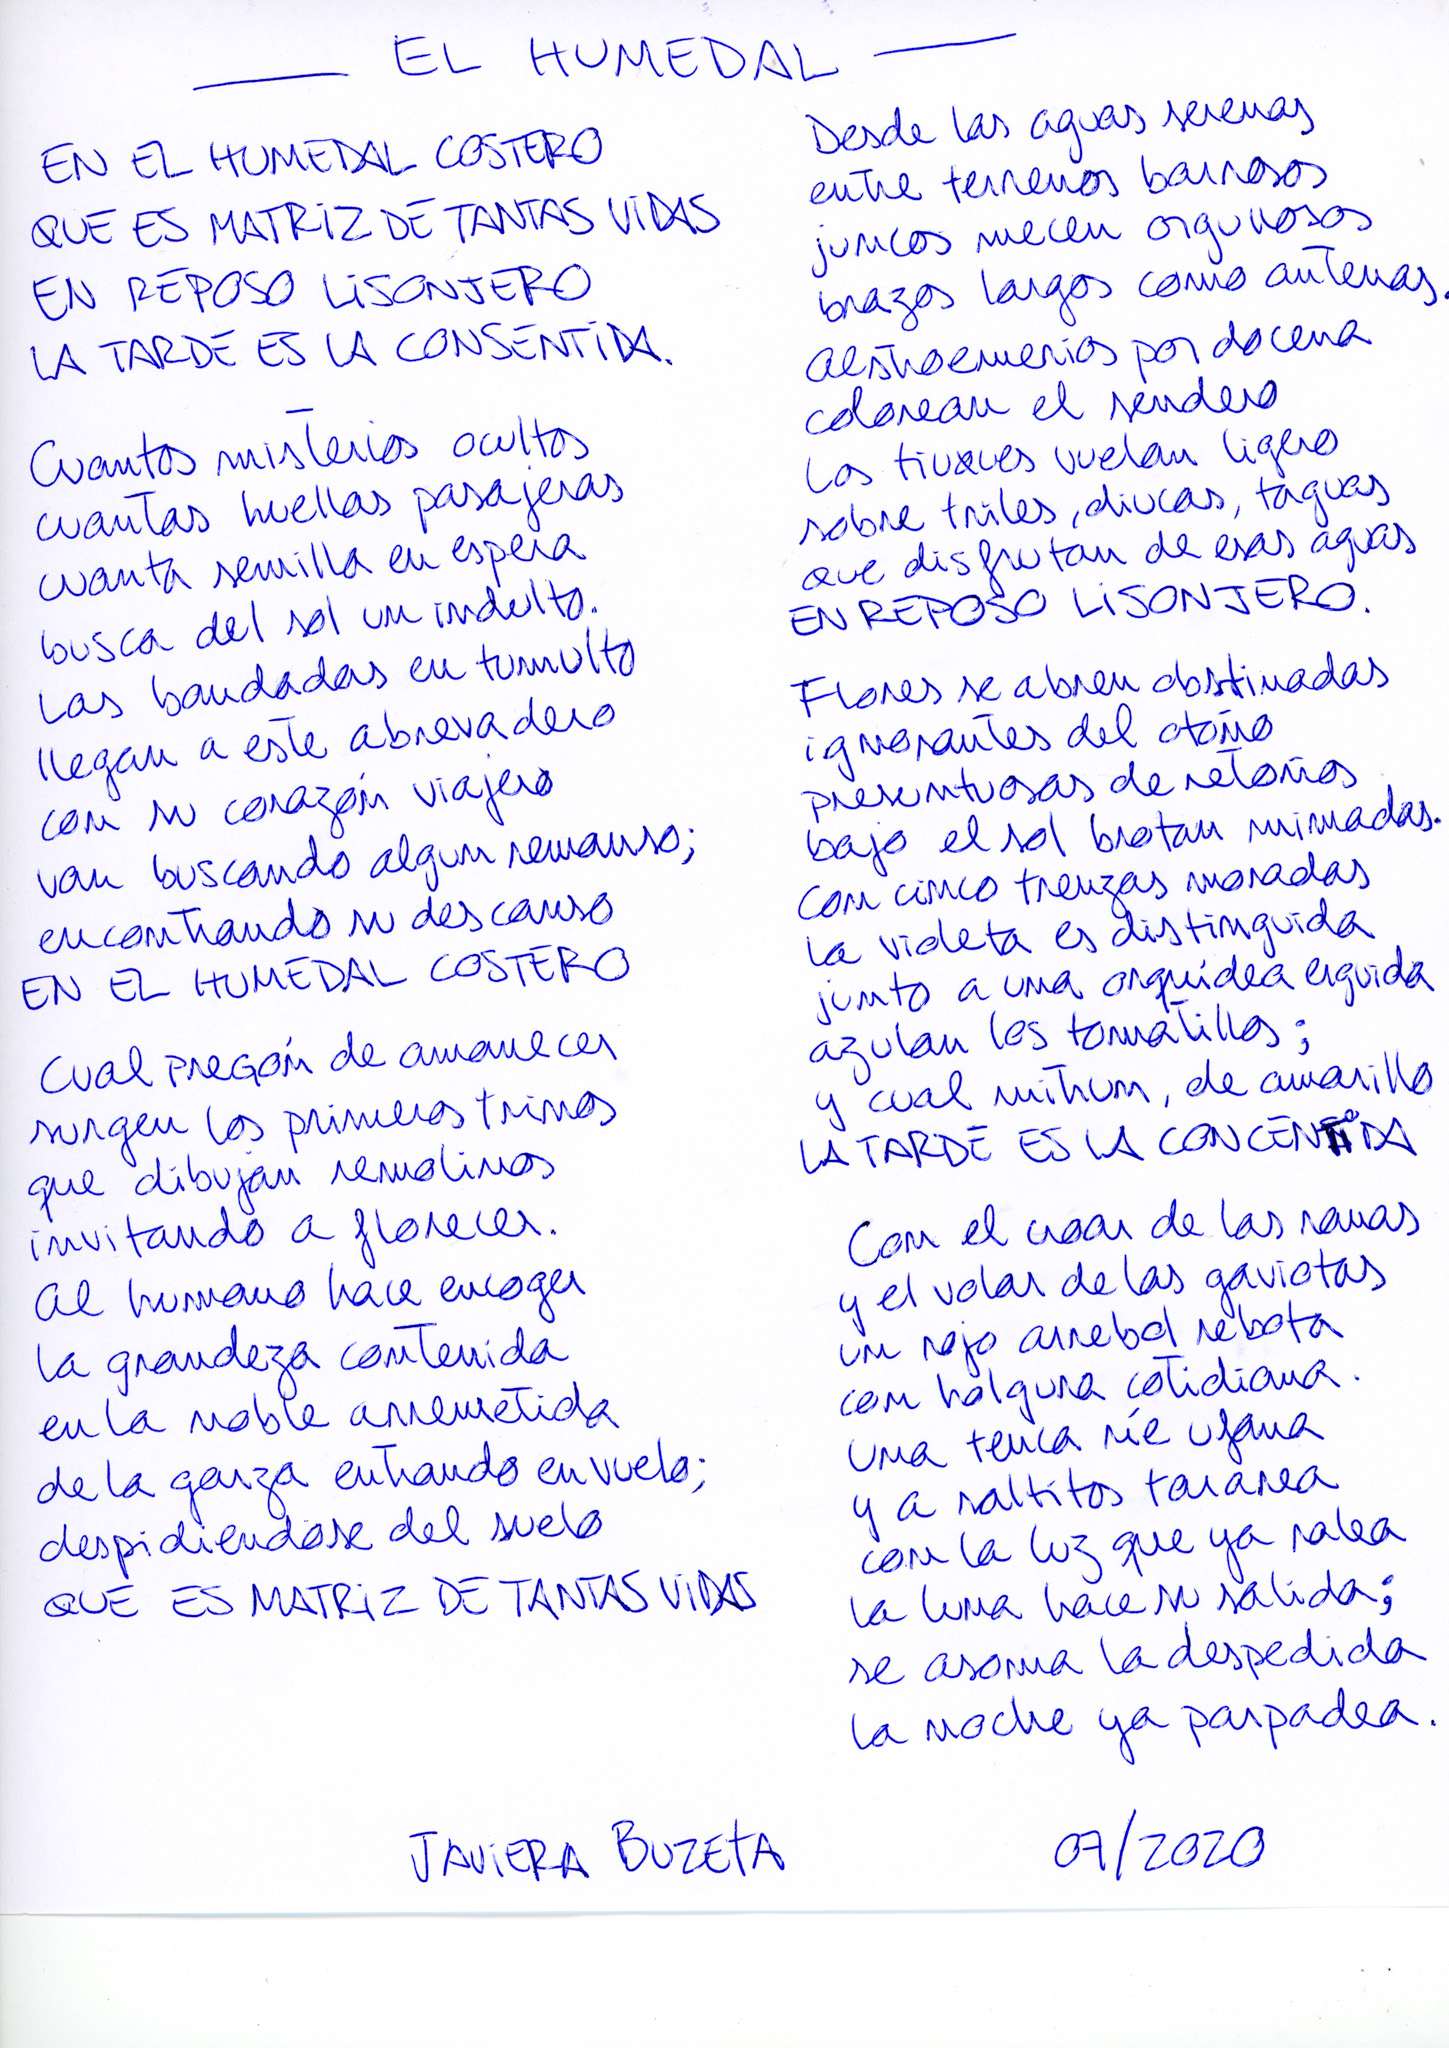 EL HUMEDAL
EN EL HUMEDAL COSTERO
QUE ES MATRIZ DE TANTAS VIDAS
EN REPOSO LISONJERO
LA TARDE ES LA CONSENTIDA.
Cuantos misterios ocultos
cuantas huellas pasajeras
cuanta semilla en espera
busca del sol un indulto.
Las bandadas en tumulto
llegan a este abrevadero
con su corazón viajero
van buscando algun remanso;
encontrando su descanso
EN EL HUMEDAL COSTERO
Cual pregón de amanecer
surgen los primeros trinos
que dibujan remolinos
invitando a florecer.
Al humano hace encoger
la grandeza contenida
en la noble arremetida
de la garza entrando en vuelo;
despidiendose del suelo
QUE ES MATRIZ DE TANTAS VIDAS
Desde las aguas serenas
entre terrenos barrosos
juncos mecen orgullosos
brazos largos como antenas.
Alstroemerias por docena
colorean el sendero
Los tiuques vuelan ligero
sobre triles, diucas, taguas
que disfrutan de esas aguas
EN REPOSO LISONJERO.
Flores se abren obstinadas
ignorantes del otoño
presuntuosas de retoños
bajo el sol brotan mimadas.
Con cinco trenzas moradas
la violeta es distinguida
junto a una orquídea erguida
azulan los tomatillos;
y cual mitrum, de amarillo
LA TARDE ES LA CONCENTIDA
Con el croar de las ranas
y el volar de las gaviotas
un rojo arrebol rebota
con holgura cotidiana.
Una tenca ríe ufana
y a saltitos tararea
con la luz que ya ralea
la luna hace su salida;
se asoma la despedida
la noche ya parpadea.
JAVIERA BUZETA 07/2020